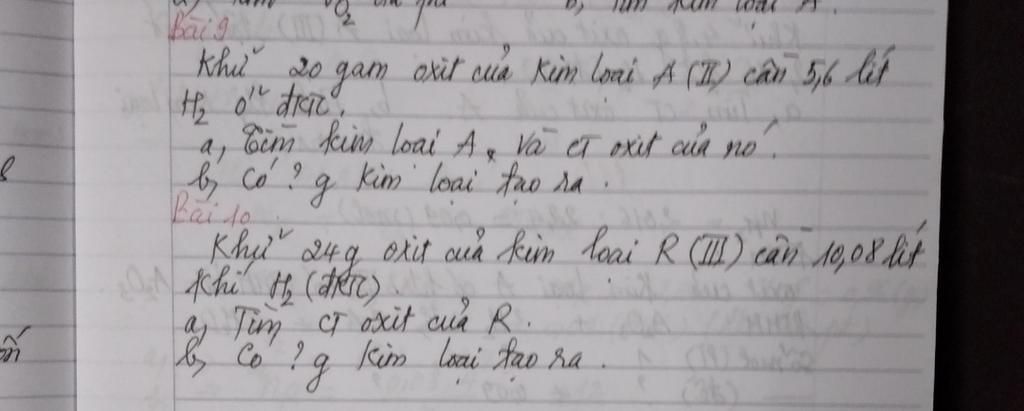 Bài 9
Khử 20 gam oxit của kim loại A (II) cần 5,6 lít
H₂ ở đktc.
a, Tìm kim loại A, và CT oxit của nó.
b, Có ? g kim loại tạo ra.
Bài 10
Khử 24g oxit của kim loại R (III) cần 10,08 lít
khí H₂ (đktc)
a, Tìm CT oxit của R.
b, Có ? g kim loại tạo ra.